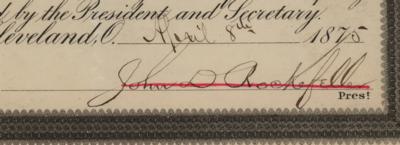 by the President and Secretary.
Cleveland, O. April 8th 1875
John D Rockefeller
Prest